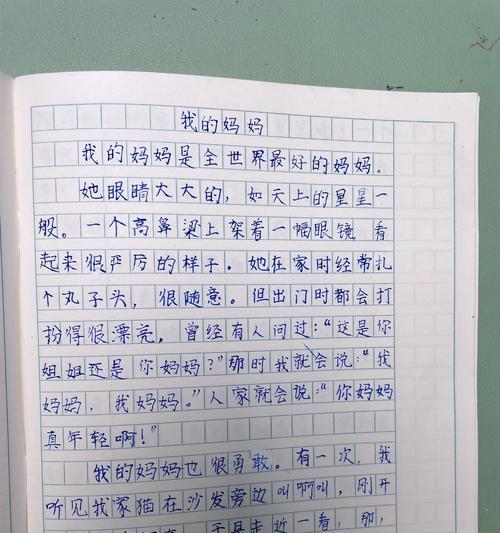 我的妈妈
我的妈妈是全世界最好的妈妈。
她眼睛大大的，如天上的星星一
般。一个高鼻梁上架着一幅眼镜，看
起来很严厉的样子。她在家时经常扎
个丸子头，很随意。但出门时都会打
扮得很漂亮，曾经有人问过：“这是你
姐姐还是你妈妈？”那时我就会说：“我
妈妈，我妈妈。”人家就会说：“你妈妈
真年轻啊！”
我的妈妈也很勇敢。有一次，我
听见我家猫在沙发旁边叫啊叫，刚开
于是走近一看，那，